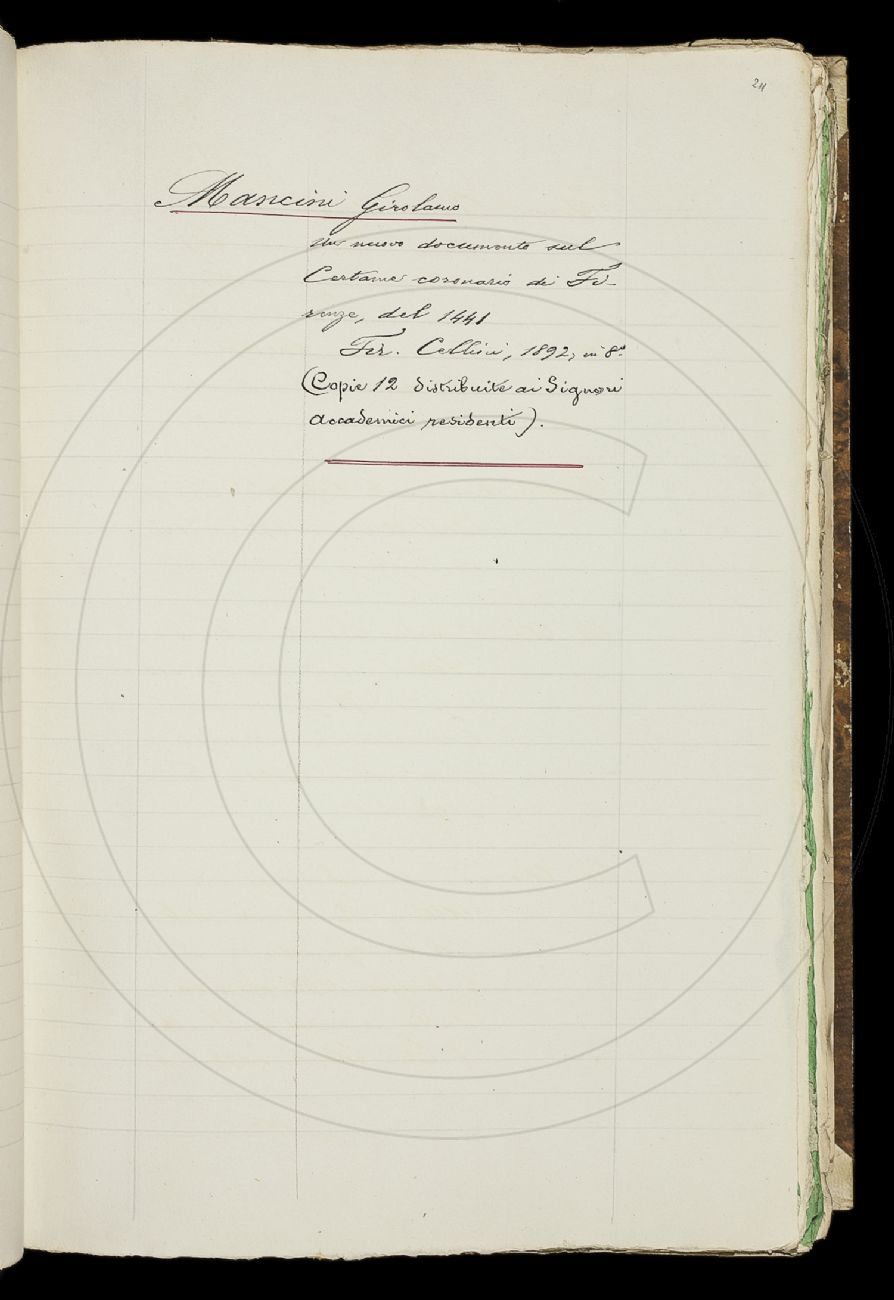 24
Mancini Girolamo
Un nuovo documento sul
Certame coronario di Fi-
renze, del 1441
Fir. Cellini, 1892, in 8.°
(Copie 12 distribuite ai Signori
accademici residenti).